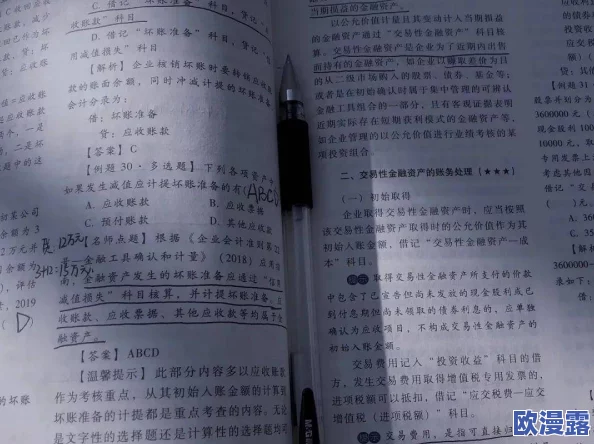 C. 借记"信用减值损失"科目，贷记"应
收账款"科目
D. 借记"坏账准备"科目，贷记"信
用减值损失"科目
【解析】企业核销坏账时要转销应收账
款的账面余额，同时冲减计提的坏账准备
会计分录为：
借：坏账准备
贷：应收账款
【答案】C
【例题30·多选题】下列各项资产中
如果发生减值应计提坏账准备的有(ABCD
A. 应收账款
B. 应收票据
C. 预付账款
D. 其他应收款
【名师点题】根据《企业会计准则第22
—金融工具确认和计量》(2018）应用
南，金融资产发生的坏账准备应通过"信用
减值损失"科目核算，并计提坏账准备。应
收账款、应收票据、其他应收款等均属于金
融资产。
【答案】ABCD
【温馨提示】此部分内容多以应收账款
作为考核重点，从其初始入账金额的计算到
坏账准备的计提都是重点考查的内容。无论
是文字性的选择题还是计算性的选择题均可
初某公司
金额为3
2万元并
12万元
3+12=15万元
，评估
，2019
(D)
当期损益的金融资产。
以公允价值计量且其变动计入当期损益
的金融资产通过"交易性金融资产"科目核
算。交易性金融资产是企业为了近期内出售
而持有的金融资产，如企业以赚取差价为目
的从二级市场购入的股票、债券、基金等；
或者是在初始确认时属于集中管理的可辨认
金融工具组合的一部分，且有客观证据表明
近期实际存在短期获利模式的金融资产等，
如企业管理的以公允价值进行业绩考核的某
项投资组合。
二、交易性金融资产的账务处理（★★★）
（一）初始取得
企业取得交易性金融资产时，应当按照
该交易性金融资产取得时的公允价值作为其
初始入账金额，借记"交易性金融资产—成
本"科目。
提示 取得交易性金融资产所支付的价款
中包含了已宣告但尚未发放的现金股利或已
到付息期但尚未领取的债券利息的，应单独
确认为应收项目，不构成交易性金融资产的
初始入账金额。
交易费用记入"投资收益"科目的借
方，发生交易费用取得增值税专用发票的，
进项税额可以抵扣，借记"应交税费—应交
增值税（进项税额）"科目。
提示 交易费用，是指可直接归
【例题31·
股票并划分为
3600000元（
现金股利100
10000元，取
专用发票上
考虑其他因
借记"交
A. 360
C. 35
【解析】
3600000-
欧漫露